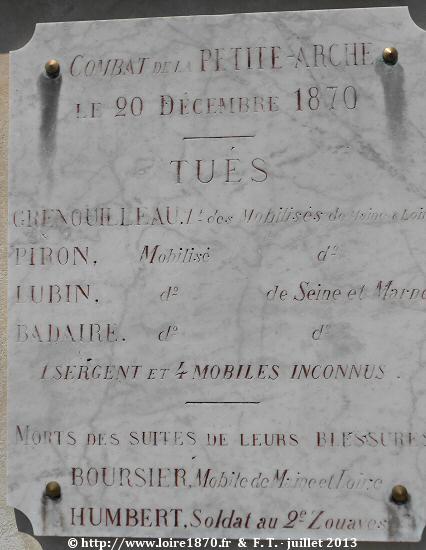 COMBAT DE LA PETITE-ARCHE
LE 20 DÉCEMBRE 1870
TUÉS
GRENOUILLEAU, Lt des Mobilisés de Maine & Loire
PIRON, Mobilisé do
LUBIN, do de Seine et Marne
BADAIRE. do do
1 SERGENT ET 4 MOBILES INCONNUS.
MORTS DES SUITES DE LEURS BLESSURES
BOURSIER, Mobile de Maine et Loire
HUMBERT, Soldat au 2e Zouaves
© http://www.loire1870.fr & F.T. - juillet 2013